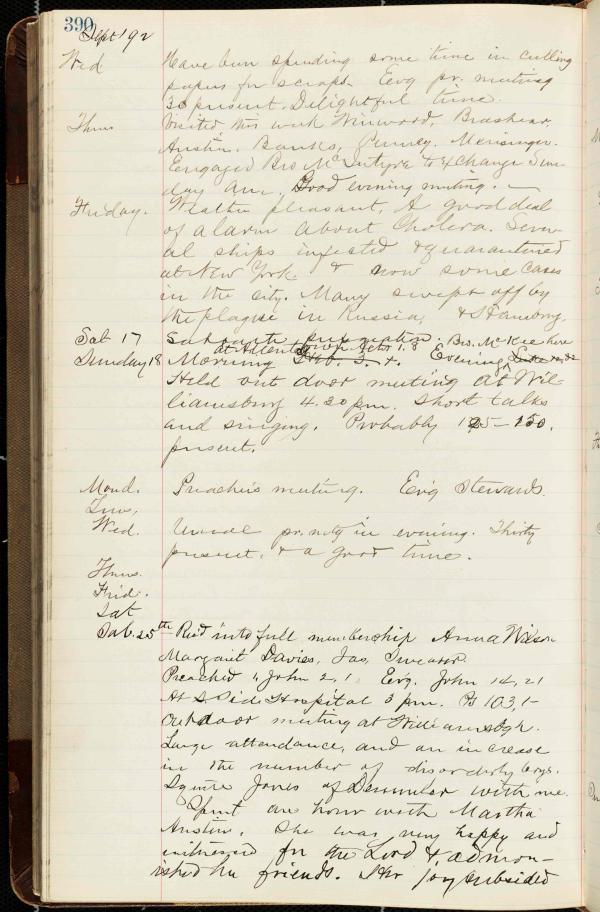 390
Sept '92
Wed Have been spending some time in culling
papers for scraps. Evg pr. meeting
30 present. Delightful time.
Thurs Visited this week Winwood, Brashear,
Austin, Banks, Penney, Mensinger.
Engaged Bro McIntyre to exchange Sun-
day am. Good evening meeting. —
Friday. Weather pleasant. A good deal
of alarm about Cholera. Sever-
al ships infected & quarantined
at New York & now some cases
in the city. Many swept off by
the plague in Russia, & Hamburg.
Sat 17 Sabbath preparation. Bro. McKee here
at Allentown Acts 1.8
Sunday 18 Morning Heb. Evening
Held out door meeting at Wil-
liamsburg 4.30 pm. Short talks
and singing. Probably 125–150.
present.
Mond. Preachers meeting. Ev'g Stewards.
Tues,
Wed. Usual pr. mtg in evening. Thirty
present, & a good time.
Thurs.
Frid.
Sat
Sab. 25th Rec'd into full membership Anna Wilson
Margaret Davies, Jas,
Preached 1, John 2, 1. Evg. John 14, 21
At S. Side Hospital 3 pm. Ps 103, 1-
Outdoor meeting at Williamsbgh.
Large attendance, and an increase
in the number of disorderly boys.
Squire Jones of with me.
Spent an hour with Martha
Austin. She was very happy and
witnessed for the Lord & admon-
ished her friends. Her joy subsided